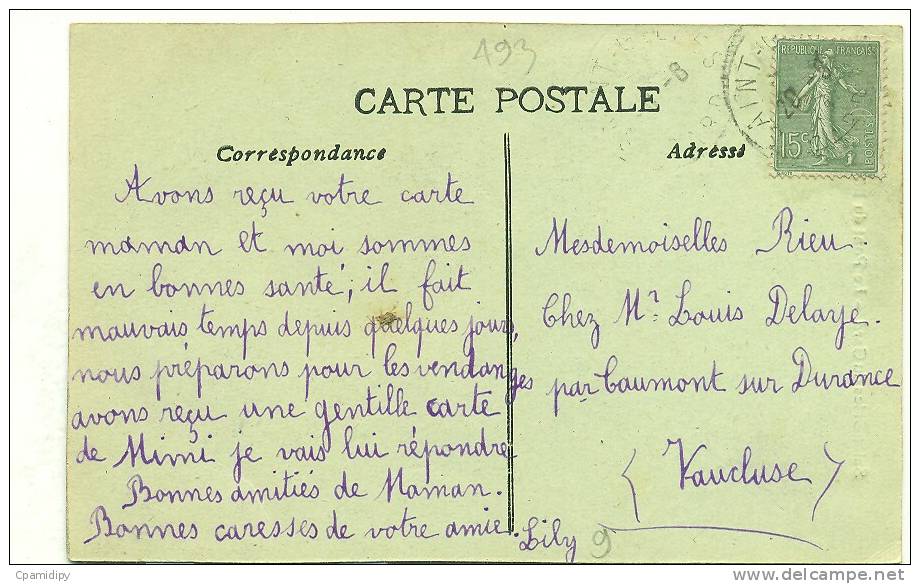 493
CARTE POSTALE
Correspondance
Avons reçu votre carte
maman et moi sommes
en bonnes santé, il fait
mauvais temps depuis quelques jours,
nous préparons pour les vendanges
avons reçu une gentille carte
de Mimi je vais lui répondre
Bonnes amitiés de Maman.
Bonnes caresses de votre amie.
Lily
9
Adresse
REPUBLIQUE FRANÇAISE
15c
POSTES
Mesdemoiselles Rieu.
Chez Mr. Louis Delaye.
par Caumont sur Durance
(Vaucluse)
Cpamidipy
www.delcampe.net